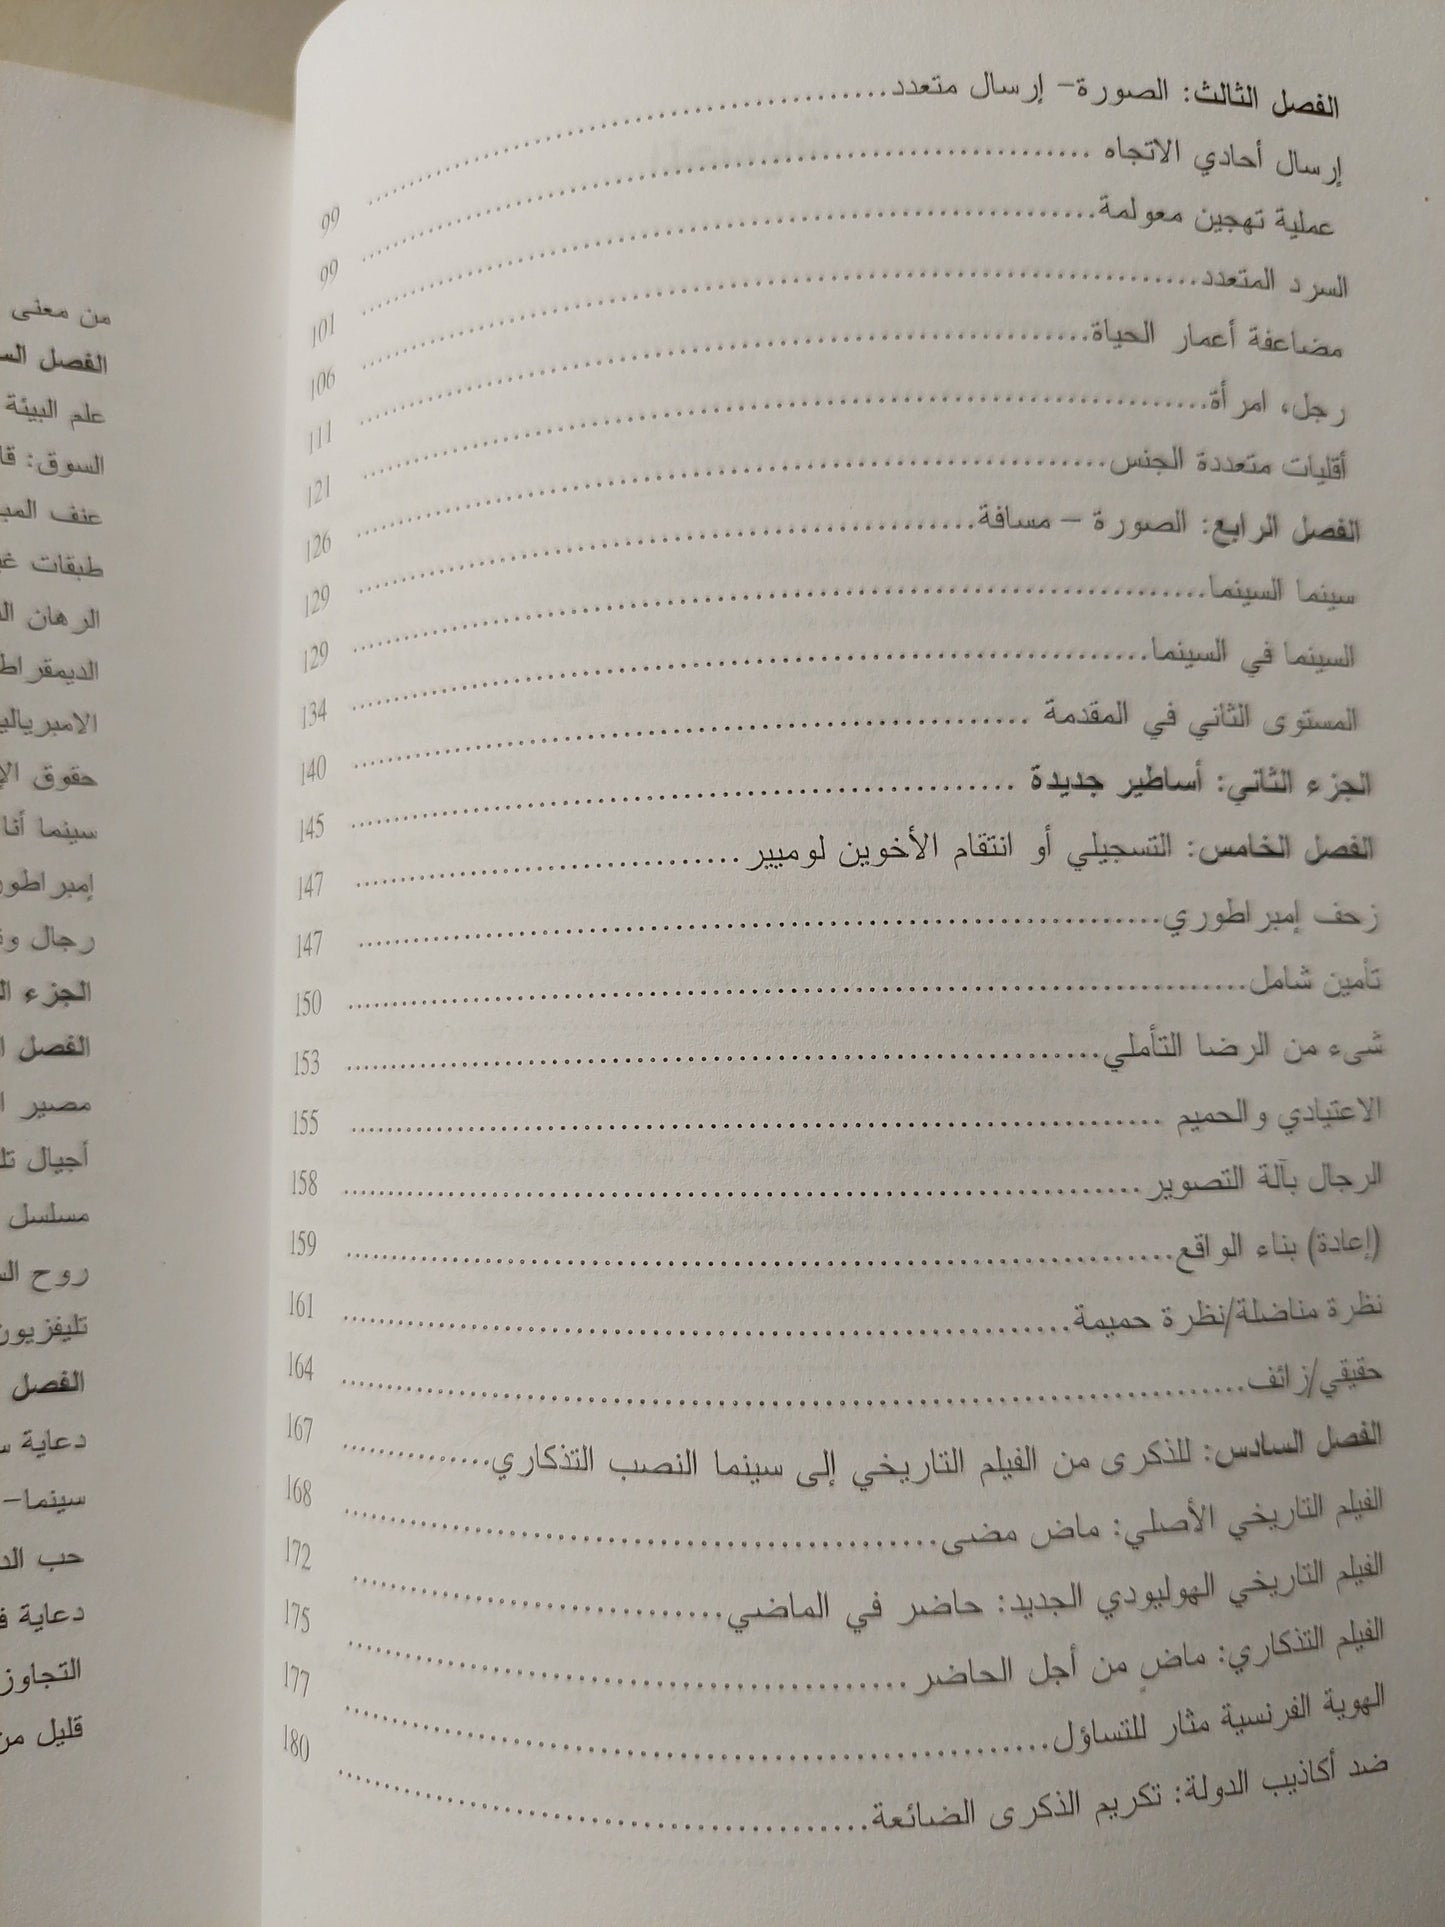 الفصل الثالث: الصورة- إرسال متعدد.......... 99
إرسال أحادي الاتجاه .......... 99
عملية تهجين معولمة.......... 101
السرد المتعدد.......... 106
مضاعفة أعمار الحياة.......... 111
رجل، امرأة.......... 121
أقليات متعددة الجنس.......... 126
الفصل الرابع: الصورة – مسافة.......... 129
سينما السينما.......... 129
السينما في السينما.......... 134
المستوى الثاني في المقدمة .......... 140
الجزء الثاني: أساطير جديدة .......... 145
الفصل الخامس: التسجيلي أو انتقام الأخوين لوميير.......... 147
زحف إمبراطوري.......... 147
تأمين شامل.......... 150
شىء من الرضا التأملي.......... 153
الاعتيادي والحميم .......... 155
الرجال بآلة التصوير.......... 158
(إعادة) بناء الواقع.......... 159
نظرة مناضلة/نظرة حميمة.......... 161
حقيقي/زائف.......... 164
الفصل السادس: للذكرى من الفيلم التاريخي إلى سينما النصب التذكاري.......... 167
الفيلم التاريخي الأصلي: ماض مضى.......... 168
الفيلم التاريخي الهوليودي الجديد: حاضر في الماضي.......... 172
الفيلم التذكاري: ماضٍ من أجل الحاضر.......... 175
الهوية الفرنسية مثار للتساؤل.......... 177
ضد أكاذيب الدولة: تكريم الذكرى الضائعة.......... 180
من معنى
الفصل
علم البيئة
السوق:
عنف
طبقات
الرهان
حقوق
سينما أنا
رجال
الجزء
الفصل
مصير
أجيال
مسلسل
روح
الفصل
دعاية
سينما-
حب
دعاية
التجاوز
قليل